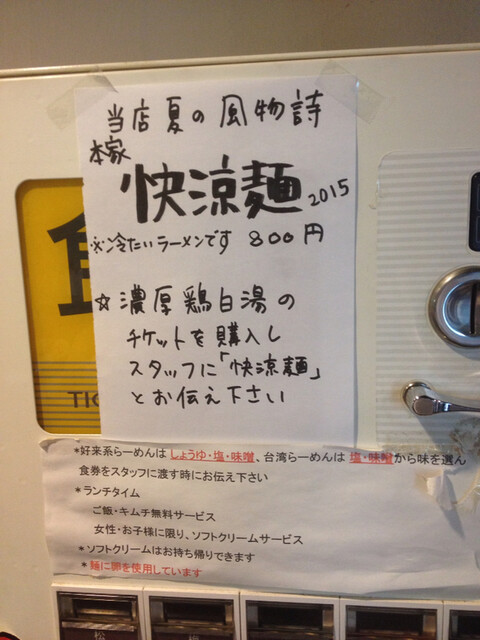 当店夏の風物詩
本家
快涼麺 2015
※冷たいラーメンです 800円
☆濃厚鶏白湯の
チケットを購入し
スタッフに「快涼麺」
とお伝え下さい
食
TIC
*好来系らーめんは しょうゆ・塩・味噌、台湾らーめんは 塩・味噌から味を選ん
食券をスタッフに渡す時にお伝え下さい
*ランチタイム
ご飯・キムチ無料サービス
女性・お子様に限り、ソフトクリームサービス
*ソフトクリームはお持ち帰りできます
*麺に卵を使用しています
松